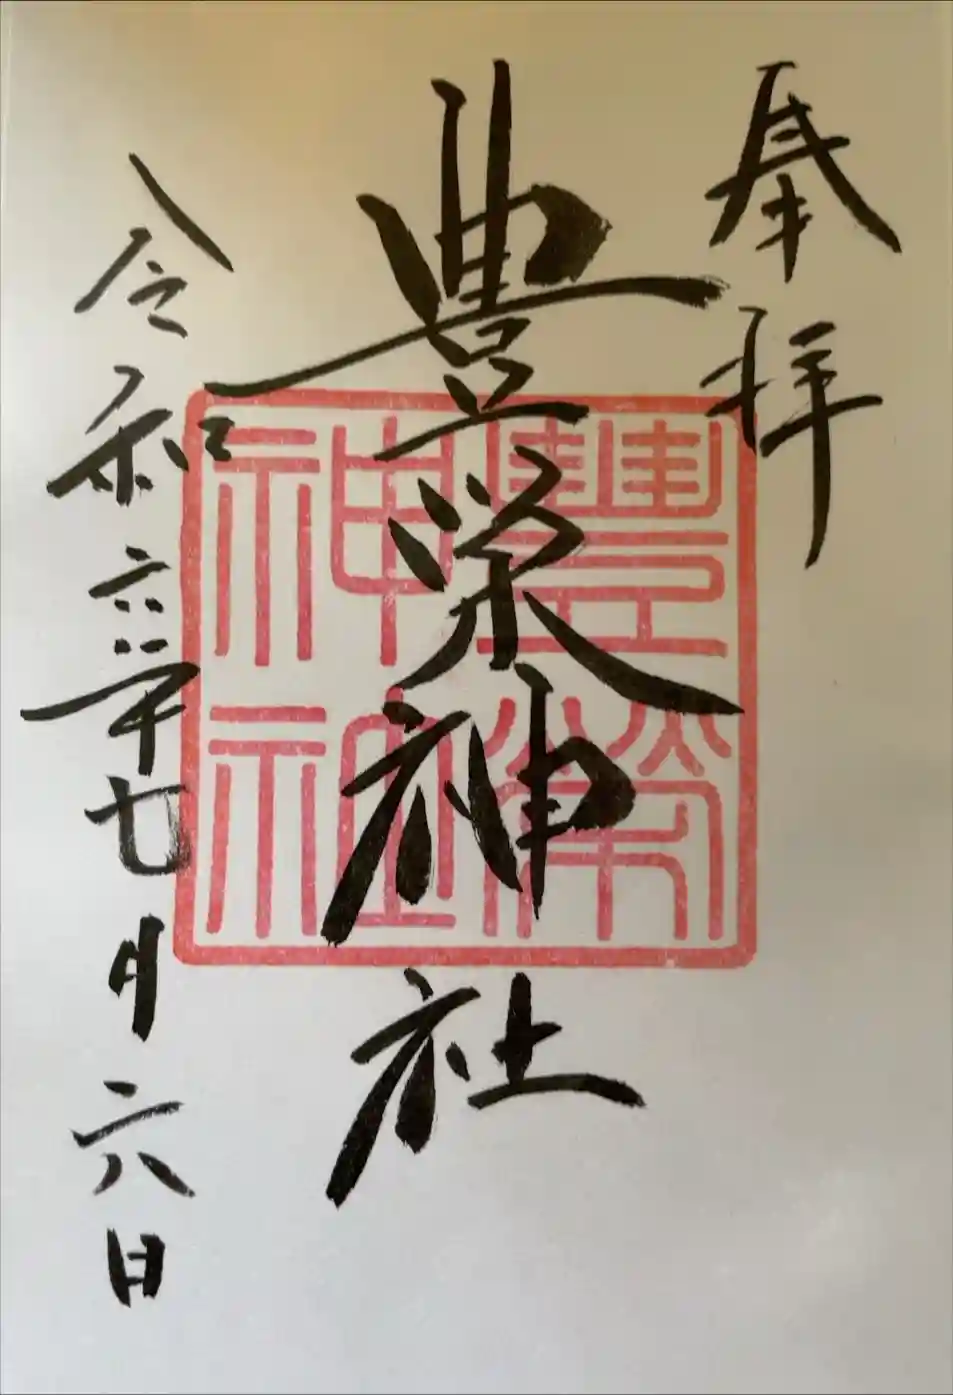 奉拝
豊栄神社
豊榮神社
令和六年七月六日